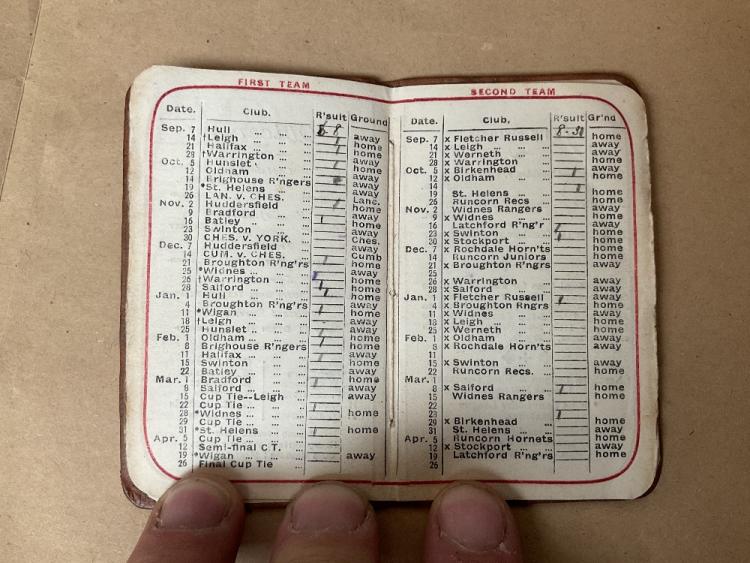 FIRST TEAM
Date. Club. R'sult Ground
Sep. 7 Hull 8-8
14 †Leigh away
21 Halifax home
28 †Warrington away
Oct. 5 Hunslet home
12 Oldham away
14 Brighouse R'ngers home
19 *St. Helens away
26 LAN. v. CHES. Lanc.
Nov. 2 Huddersfield home
9 Bradford away
16 Batley home
23 Swinton away
30 CHES. v. YORK. Ches.
Dec. 7 Huddersfield away
14 CUM. v. CHES. Cumb
21 Broughton R'ng'rs home
25 *Widnes away
26 †Warrington home
28 Salford home
Jan. 1 Hull home
4 Broughton R'ng'rs away
11 *Wigan home
18 †Leigh away
25 Hunslet away
Feb. 1 Oldham home
8 Brighouse R'ngers home
11 Halifax away
15 Swinton home
22 Batley away
Mar. 1 Bradford home
8 Salford away
15 Cup Tie--Leigh away
22 Cup Tie
28 *Widnes home
29 Cup Tie
31 *St. Helens home
Apr. 5 Cup Tie
12 Semi-final C.T.
19 *Wigan away
26 Final Cup Tie
SECOND TEAM
Date. Club. R'sult Gr'nd
Sep. 7 x Fletcher Russell home
14 x Leigh away
21 x Werneth away
28 x Warrington home
Oct. 5 x Birkenhead away
12 x Oldham home
14
19 St. Helens home
26 Runcorn Recs away
Nov. 2 Widnes Rangers away
9 x Widnes home
16 Latchford R'ng'r away
23 x Swinton away
30 x Stockport home
Dec. 7 x Rochdale Horn'ts home
14 Runcorn Juniors home
21 x Broughton R'ngrs away
25
26 x Warrington away
28 x Salford home
Jan. 1 x Fletcher Russell away
4 x Broughton Rngrs home
11 x Widnes away
18 x Leigh home
25 x Werneth home
Feb. 1 x Oldham away
8 x Rochdale Horn'ts away
11
15 x Swinton away
22 Runcorn Recs. home
Mar. 1
8 x Salford home
15 Widnes Rangers home
22
28
29 x Birkenhead home
31 St. Helens away
Apr. 5 Runcorn Hornets home
12 x Stockport away
19 Latchford R'ng'rs home
26